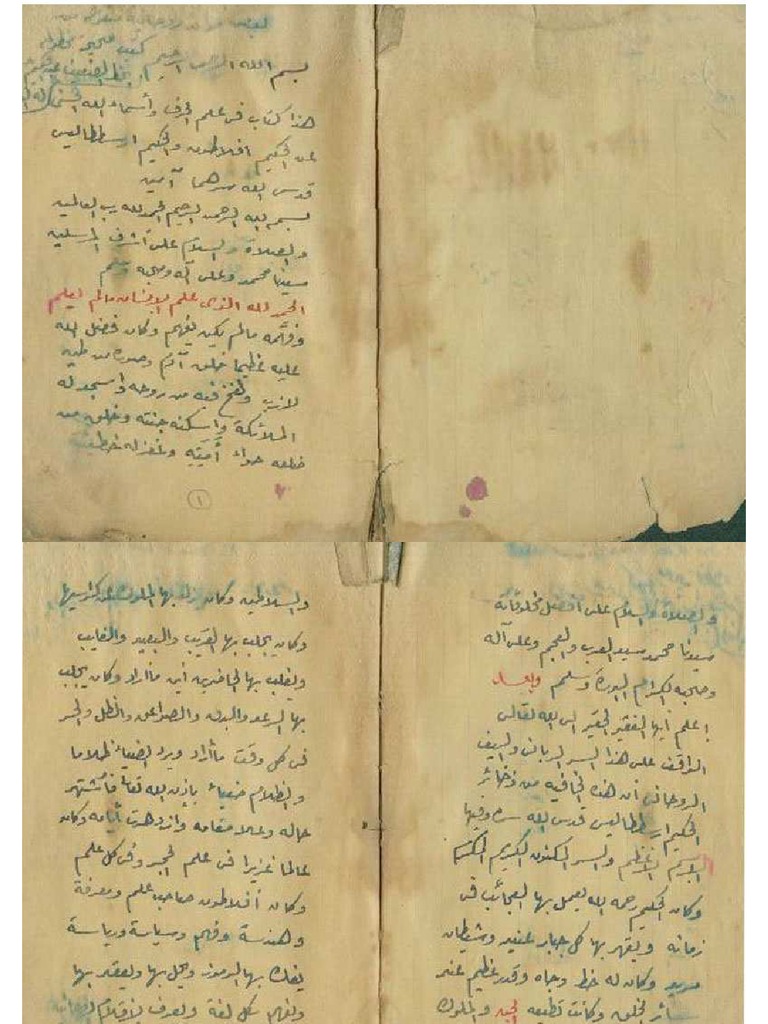 بسم الله الرحمن الرحيم
هذا كتاب في علم الحرف وأسماء الله الحسنى
عن الحكيم افلاطون والحكيم ارسططاليس
قدس الله سرهما آمين
بسم الله الرحمن الرحيم الحمد لله رب العالمين
والصلاة والسلام على أشرف المرسلين
سيدنا محمد وعلى آله وصحبه وسلم
الحمد لله الذي علم الإنسان مالم يعلم
وفهّمه مالم يكن يفهم وكان فضل الله
عليه عظيما خلق آدم وصوره من طين
لازب ونفخ فيه من روحه واسجد له
الملائكة واسكنه جنته وخلق من
ضلعه حواء وغفر له
١
والصلاة والسلام على افضل مخلوقاته
سيدنا محمد سيد العرب والعجم وعلى آله
وصحبه الكرام البررة وسلم وبعد
اعلم أيها الفقير الحقير الى الله تعالى
الواقف على هذا السر الرباني والسيف
الروحاني أن هذه من ذخائر
الحكيم ارسططاليس قدس الله سره وفيها
الاسم الاعظم والسر المكنون الكريم
وكان الحكيم رحمه الله يعمل بها العجائب في
زمانه ويقهر بها كل جبار عنيد وشيطان
مريد وكان له حظ وجاه وقدر عظيم عند
سائر الخلق وكانت تطيعه والملوك
والسلاطين وكان بها الملوك عن كراسيها
وكان يجلب بها القريب والبعيد والغايب
ويقلب بها الحاضرين أين ما أراد وكان يجلب
بها الرعد والبرق والصواعق والظل والحر
في كل وقت ما أراد ويرد الضياء ظلاما
والظلام ضياء بإذن الله تعا فاشتهر
حاله وعلا مقامه وازدهرت أيامه وكان
عالما غزيرا في علم الجبر وفي كل علم
وكان أفلاطون صاحب علم ومعرفة
وهندسة وفهم وسياسة ورياسة
يفك بها الرموز ويحل بها ويعقد بها
ويفهم كل لغة ويعرف